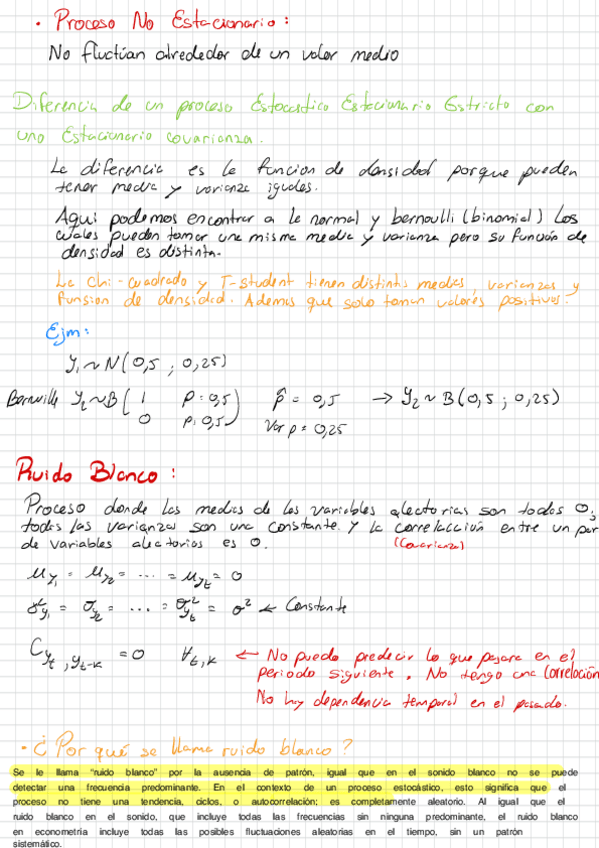 • Proceso No Estacionario:
No fluctúan alrededor de un valor medio
Diferencia de un proceso Estocastico Estacionario Estricto con
uno Estacionario covarianza.
La diferencia es la funcion de densidad porque pueden
tener media y varianza iguales.
Aqui podemos encontrar a la normal y bernoulli (binomial) Los
cuales pueden tomar una misma media y varianza pero su función de
densidad es distinta.
La Chi-cuadrado y T-student tienen distintas medias, varianzas y
funsion de densidad. Ademas que solo toman valores positivos.
Ejm:
Y₁ ~ N (0,5 ; 0,25)
Y₂ ~ B ( 1 p = 0,5 p̂ = 0,5 → Y₂ ~ B (0,5 ; 0,25)
0 p: 0,5 ) Var p = 0,25
Ruido Blanco:
Proceso donde las medias de las variables aleatorias son todas 0,
todas las varianzas son una constante. Y la correlacción entre un par
de variables aleatorias es 0. (Covarianza)
μ_y₁ = μ_y₂ = ... = μ_yt = 0
σ²_y₁ = σ_y₂ = ... = σ²_yt = σ² ← Constante
C_yt, yt-k = 0 ∀t,k ← No puedo predecir lo que pasara en el
periodo siguiente. No tengo una Correlación
No hay dependencia temporal en el pasado.
• ¿Por qué se llama ruido blanco?
Se le llama "ruido blanco" por la ausencia de patrón, igual que en el sonido blanco no se puede
detectar una frecuencia predominante. En el contexto de un proceso estocástico, esto significa que el
proceso no tiene una tendencia, ciclos, o autocorrelación; es completamente aleatorio. Al igual que el
ruido blanco en el sonido, que incluye todas las frecuencias sin ninguna predominante, el ruido blanco
en econometría incluye todas las posibles fluctuaciones aleatorias en el tiempo, sin un patrón
sistemático.